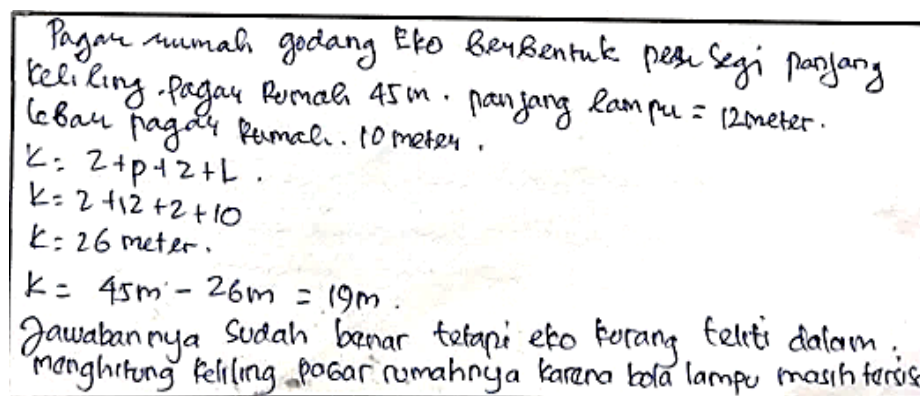 Pagar rumah godang Eko berbentuk persegi panjang
keliling pagar rumah 45 m. panjang lampu = 12 meter.
lebar pagar rumah. 10 meter.
K = 2 + p + 2 + L.
K = 2 + 12 + 2 + 10
K = 26 meter.
K = 45m - 26m = 19m.
Jawabannya sudah benar tetapi eko korang teliti dalam.
menghitung keliling pagar rumahnya karena bola lampu masih tersis